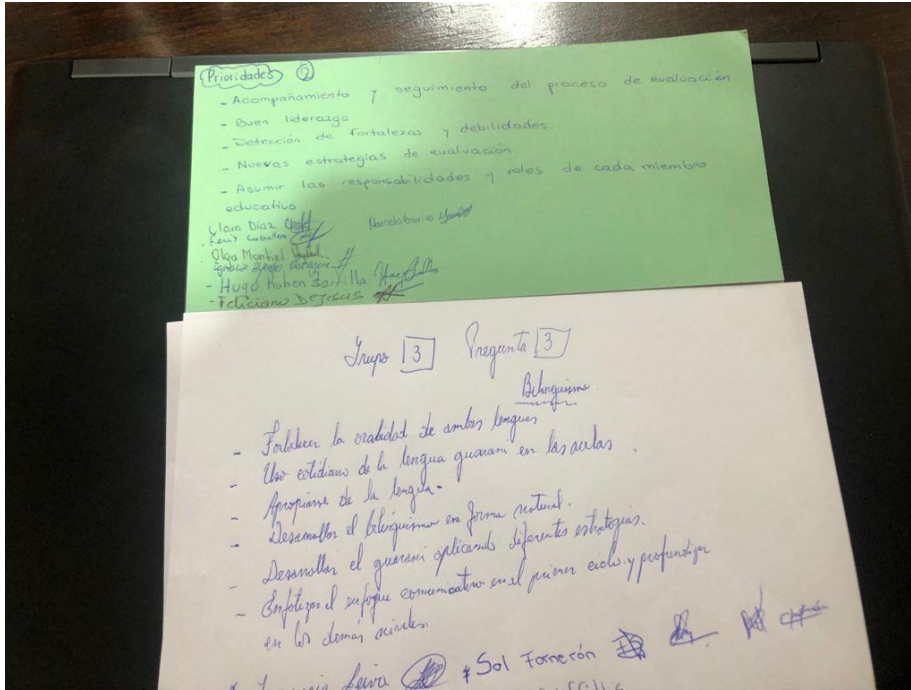 Prioridades 2
- Acompañamiento y seguimiento del proceso de evaluación
- Buen liderazgo
- Detección de fortalezas y debilidades.
- Nuevas estrategias de evaluación
- Asumir las responsabilidades y roles de cada miembro
educativo
Clara Díaz
Olga Montiel
- Hugo Ruben Zorrilla
- Feliciano De Jesús
Grupo 3 Pregunta 3
Bilinguismo
- Fortalecer la oralidad de ambas lenguas
- Uso cotidiano de la lengua guarani en las aulas.
- Apropiarse de la lengua.
- Desarrollar el bilinguismo en forma natural.
- Desarrollar el guarani aplicando diferentes estrategias.
- Enfatizar el enfoque comunicativo en el primer ciclo y profundizar
en los demás niveles.
Leiva * Sol Fornerón